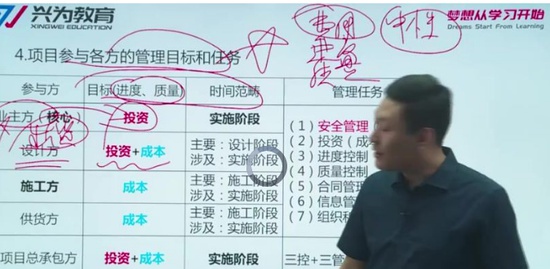 兴为教育
XINGWEI EDUCATION
梦想从学习开始
Dreams Start From Learning
4.项目参与各方的管理目标和任务
参与方 目标(进度、质量) 时间范畴 管理任务
业主方(核心) 投资 实施阶段
设计方 投资+成本 主要:设计阶段
涉及:实施阶段
施工方 成本 主要:施工阶段
涉及:实施阶段
供货方 成本 主要:
涉及:实施阶段
项目总承包方 投资+成本 实施阶段 三控+三管
(1)安全管理
(2)投资(成
(3)进度控制
(4)质量控制
(5)合同管理
(6)信息管
(7)组织和